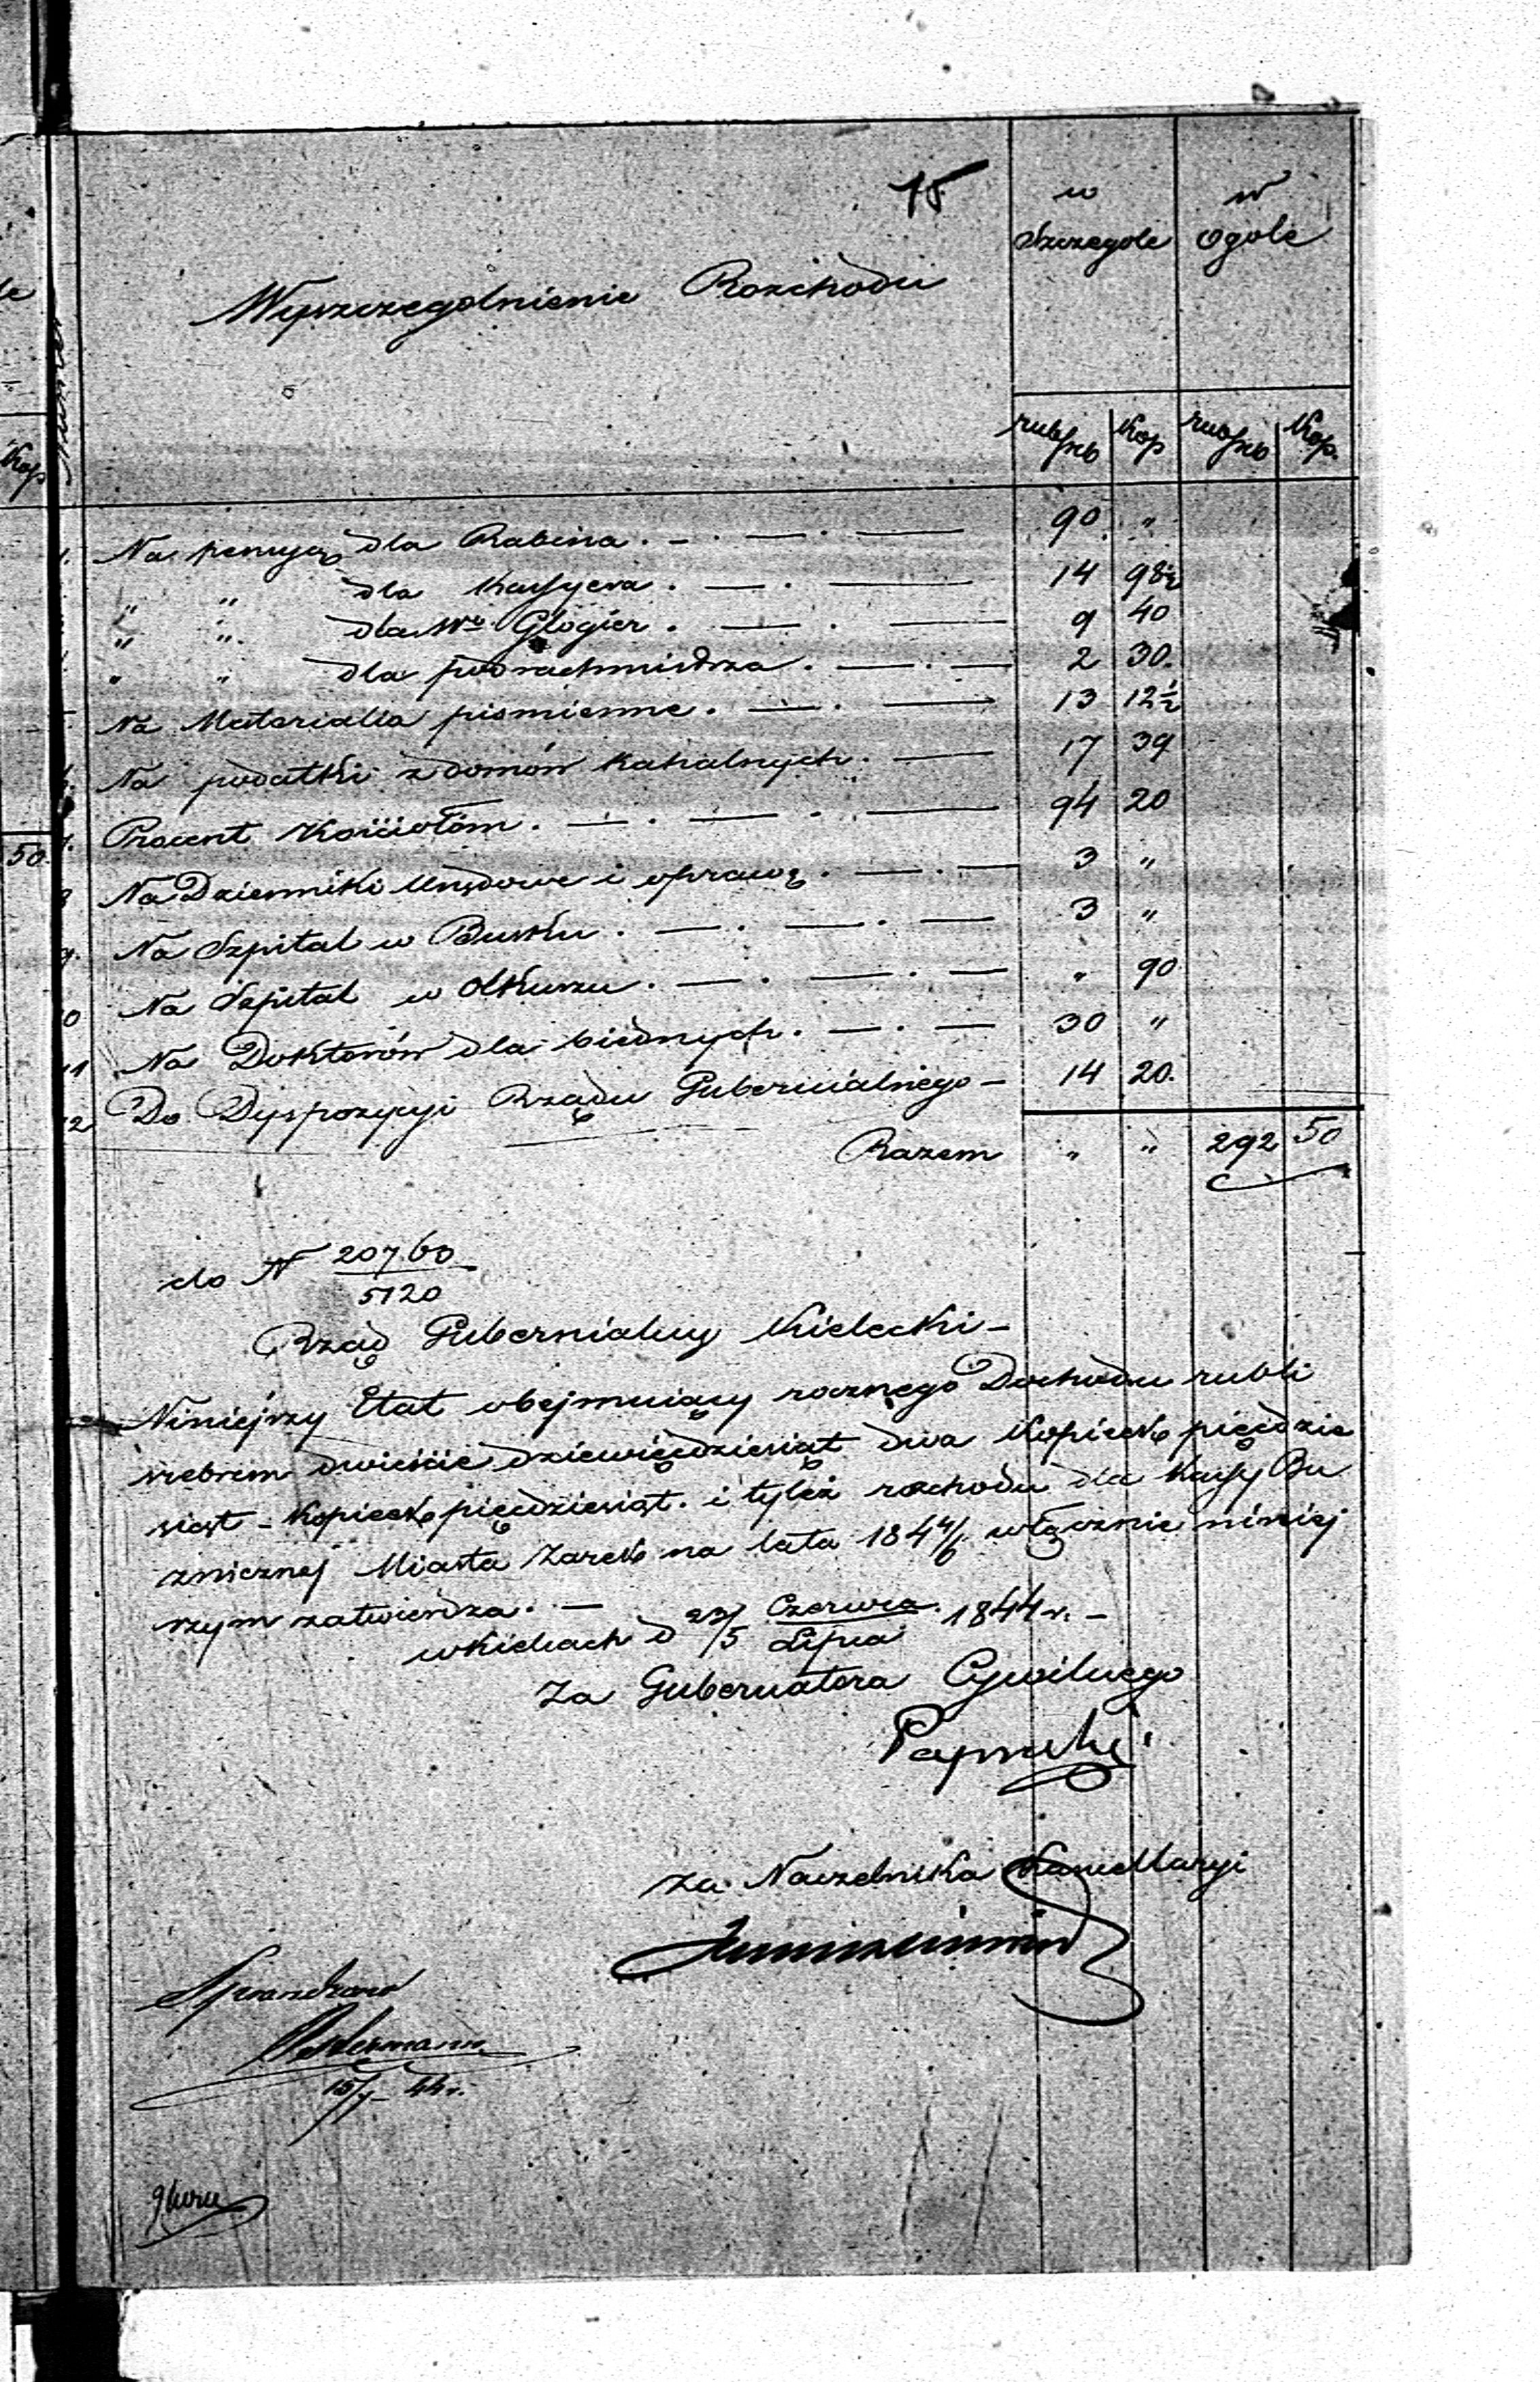 15
w Szczegole
w ogole
Wyszczegolnienie Rozchodu
rub srb Kop rub srb Kop.
Kop
1. Na pensyą dla Rabina . — . — . — 90 „
„ „ dla Kassyera . — . — 14 98½
„ „ dla Wo Glogier . — . — 9 40
„ „ dla podrachmistrza . — . — 2 30.
Na Materialia pismienne . — . — 13 12½
Na podatki z domów Kahalnych . — 17 39
50. 7. Procent Kościołom . — . — . — 94 20
8 Na Dzienniki Urzędowe i oprawę . — . — 3 „
9. Na Szpital w Busku . — . — . — 3 „
10 Na Szpital w Olkuszu . — . — . — „ 90
11 Na Doktorów dla biednych . — . — 30 „
12 Do Dyspozycyi Rządu Gubernialnego — 14 20.
Razem „ „ 292 50
do N 20760/5120
Rząd Gubernialny Kielecki —
Niniejszy Etat obejmuiący rocznego Dochodu rubli
srebrem dwieście dziewięćdziesiąt dwa Kopiеek pięćdzie
siąt – Kopieek pięćdziesiąt. i tyleż rozchodu dla Kassy Bu
zniczney Miasta Zarek na lata 1844/6 włącznie niniej
szym zatwierdza. —
w Kielcach d 23/5 Czerwca/Lipca 1844 r. —
Za Gubernatora Cywilnego
Za Naczelnika Kancellaryi
Sprawdzono
44 r.